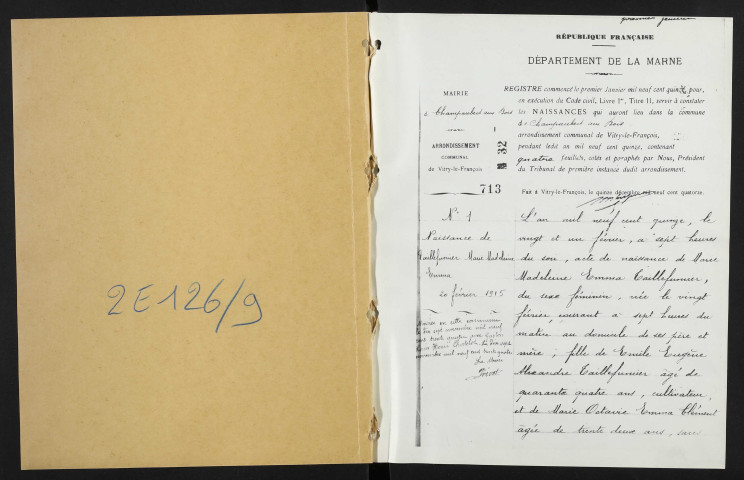 2E126/9
premier janvier
RÉPUBLIQUE FRANÇAISE
DÉPARTEMENT DE LA MARNE
MAIRIE
de Champaubert aux Bois
ARRONDISSEMENT
COMMUNAL
de Vitry-le-François
32
713
REGISTRE commencé le premier Janvier mil neuf cent quinze, pour,
en exécution du Code civil, Livre Ier, Titre II, servir à constater
les NAISSANCES qui auront lieu dans la commune
de Champaubert aux Bois
arrondissement communal de Vitry-le-François,
pendant ledit an mil neuf cent quinze, contenant
quatre feuillets, cotés et paraphés par Nous, Président
du Tribunal de première instance dudit arrondissement.
Fait à Vitry-le-François, le quinze décembre mil neuf cent quatorze.
N° 1
Naissance de
Taillefumier Marie Madeleine
Emma
20 février 1915
Mariée en cette commune
le dix sept novembre mil neuf
cent trente quatre avec
Henri Le dix sept
novembre mil neuf cent trente quatre
Le Maire
L'an mil neuf cent quinze, le
vingt et un février, à sept heures
du soir, acte de naissance de Marie
Madeleine Emma Taillefumier,
du sexe féminin, née le vingt
février courant à sept heures du
matin au domicile de ses père et
mère, fille de Emile Eugène
Alexandre Taillefumier âgé de
quarante quatre ans, cultivateur,
et de Marie Octavie Emma Clément
âgée de trente deux ans, sans